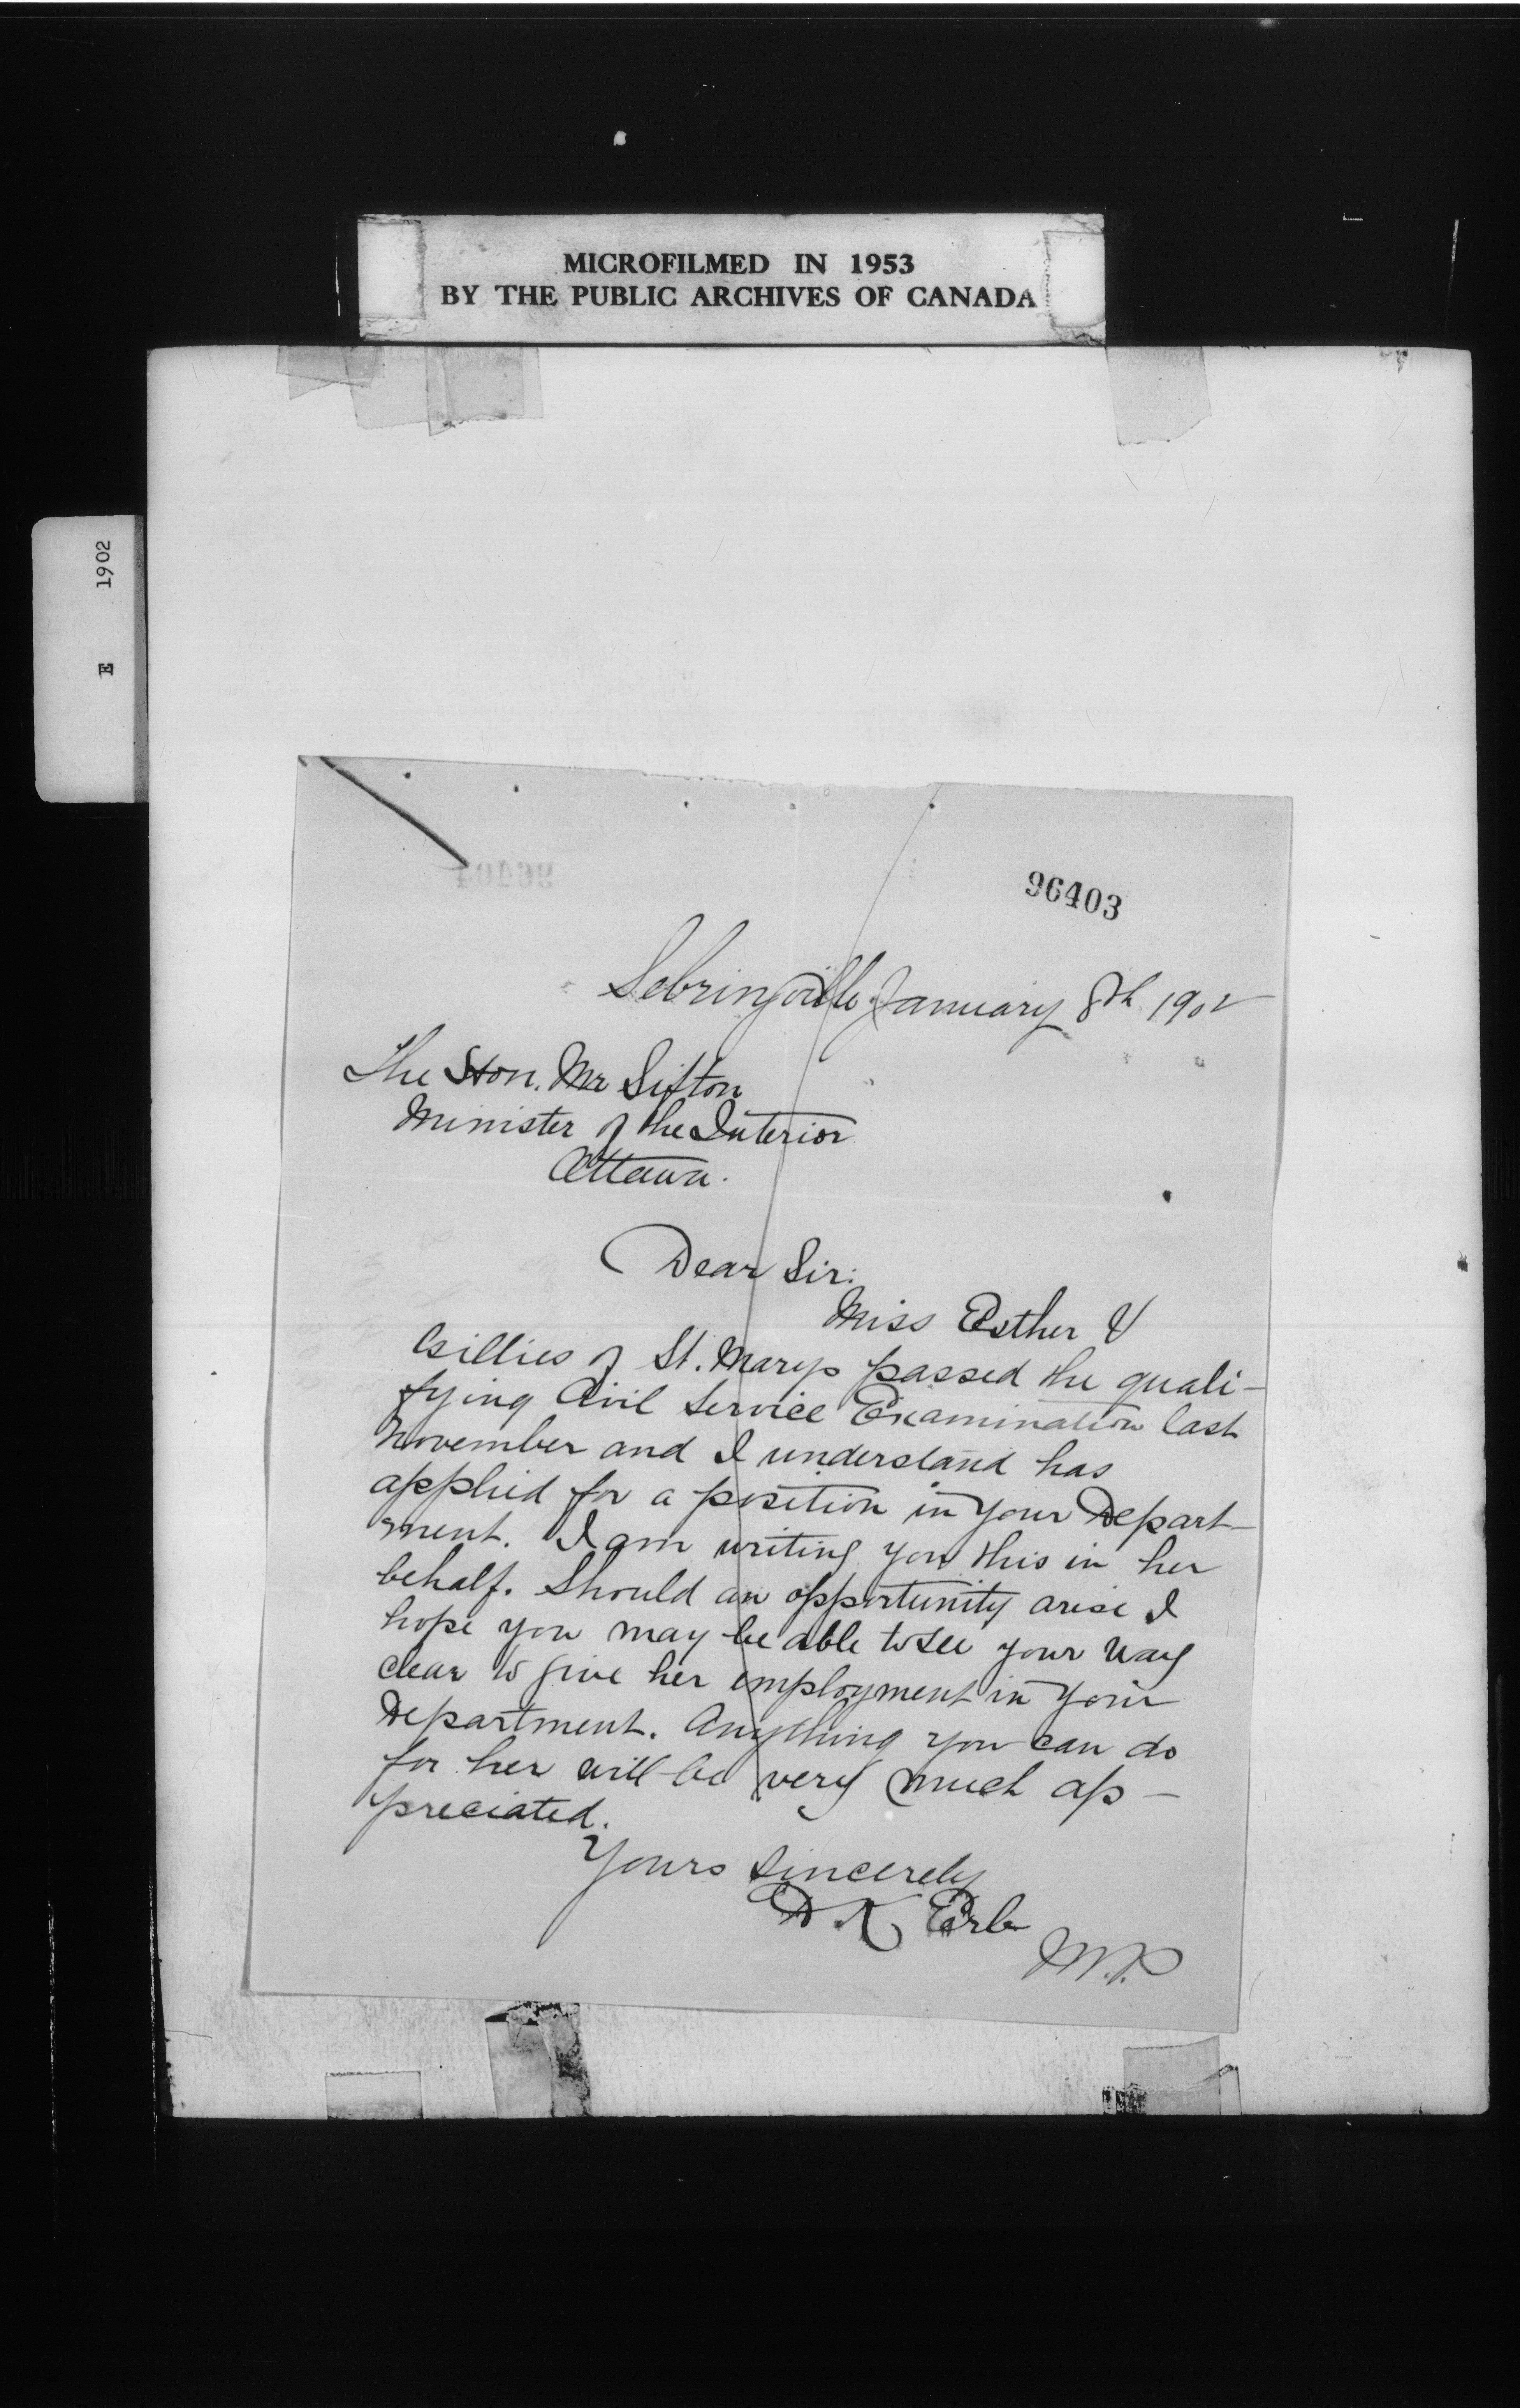 MICROFILMED IN 1953
BY THE PUBLIC ARCHIVES OF CANADA
E 1902
96403
Sebringville January 8th 1902
The Hon. Mr Sifton
Minister of the Interior
Ottawa.
Dear Sir:
Miss Esther V
Gillies of St. Marys passed the quali-
fying Civil Service Examination last
November and I understand has
applied for a position in your Depart-
ment. I am writing you this in her
behalf. Should an opportunity arise I
hope you may be able to see your way
clear to give her employment in your
Department. Anything you can do
for her will be very much ap-
preciated.
Yours Sincerely
D K Erb
M.P.